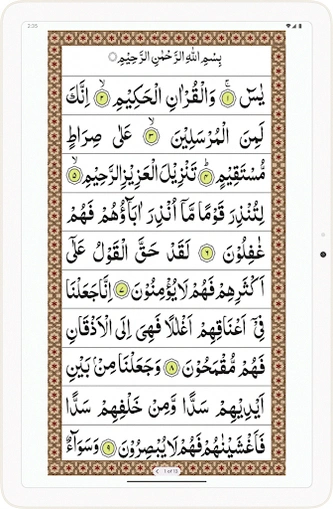 2:35
بِسْمِ اللهِ الرَّحْمٰنِ الرَّحِيْمِ
يٰسٓ ۚ ﴿١﴾ وَالْقُرْاٰنِ الْحَكِيْمِ ﴿٢﴾ اِنَّكَ
لَمِنَ الْمُرْسَلِيْنَ ﴿٣﴾ عَلٰى صِرَاطٍ
مُّسْتَقِيْمٍ ﴿٤﴾ تَنْزِيْلَ الْعَزِيْزِ الرَّحِيْمِ ﴿٥﴾
لِتُنْذِرَ قَوْمًا مَّآ اُنْذِرَ اٰبَآؤُهُمْ فَهُمْ
غٰفِلُوْنَ ﴿٦﴾ لَقَدْ حَقَّ الْقَوْلُ عَلٰٓى
اَكْثَرِهِمْ فَهُمْ لَا يُؤْمِنُوْنَ ﴿٧﴾ اِنَّا جَعَلْنَا
فِيْٓ اَعْنَاقِهِمْ اَغْلٰلًا فَهِيَ اِلَى الْاَذْقَانِ
فَهُمْ مُّقْمَحُوْنَ ﴿٨﴾ وَجَعَلْنَا مِنْۢ بَيْنِ
اَيْدِيْهِمْ سَدًّا وَّمِنْ خَلْفِهِمْ سَدًّا
فَاَغْشَيْنٰهُمْ فَهُمْ لَا يُبْصِرُوْنَ ﴿٩﴾ وَسَوَآءٌ
1 of 13